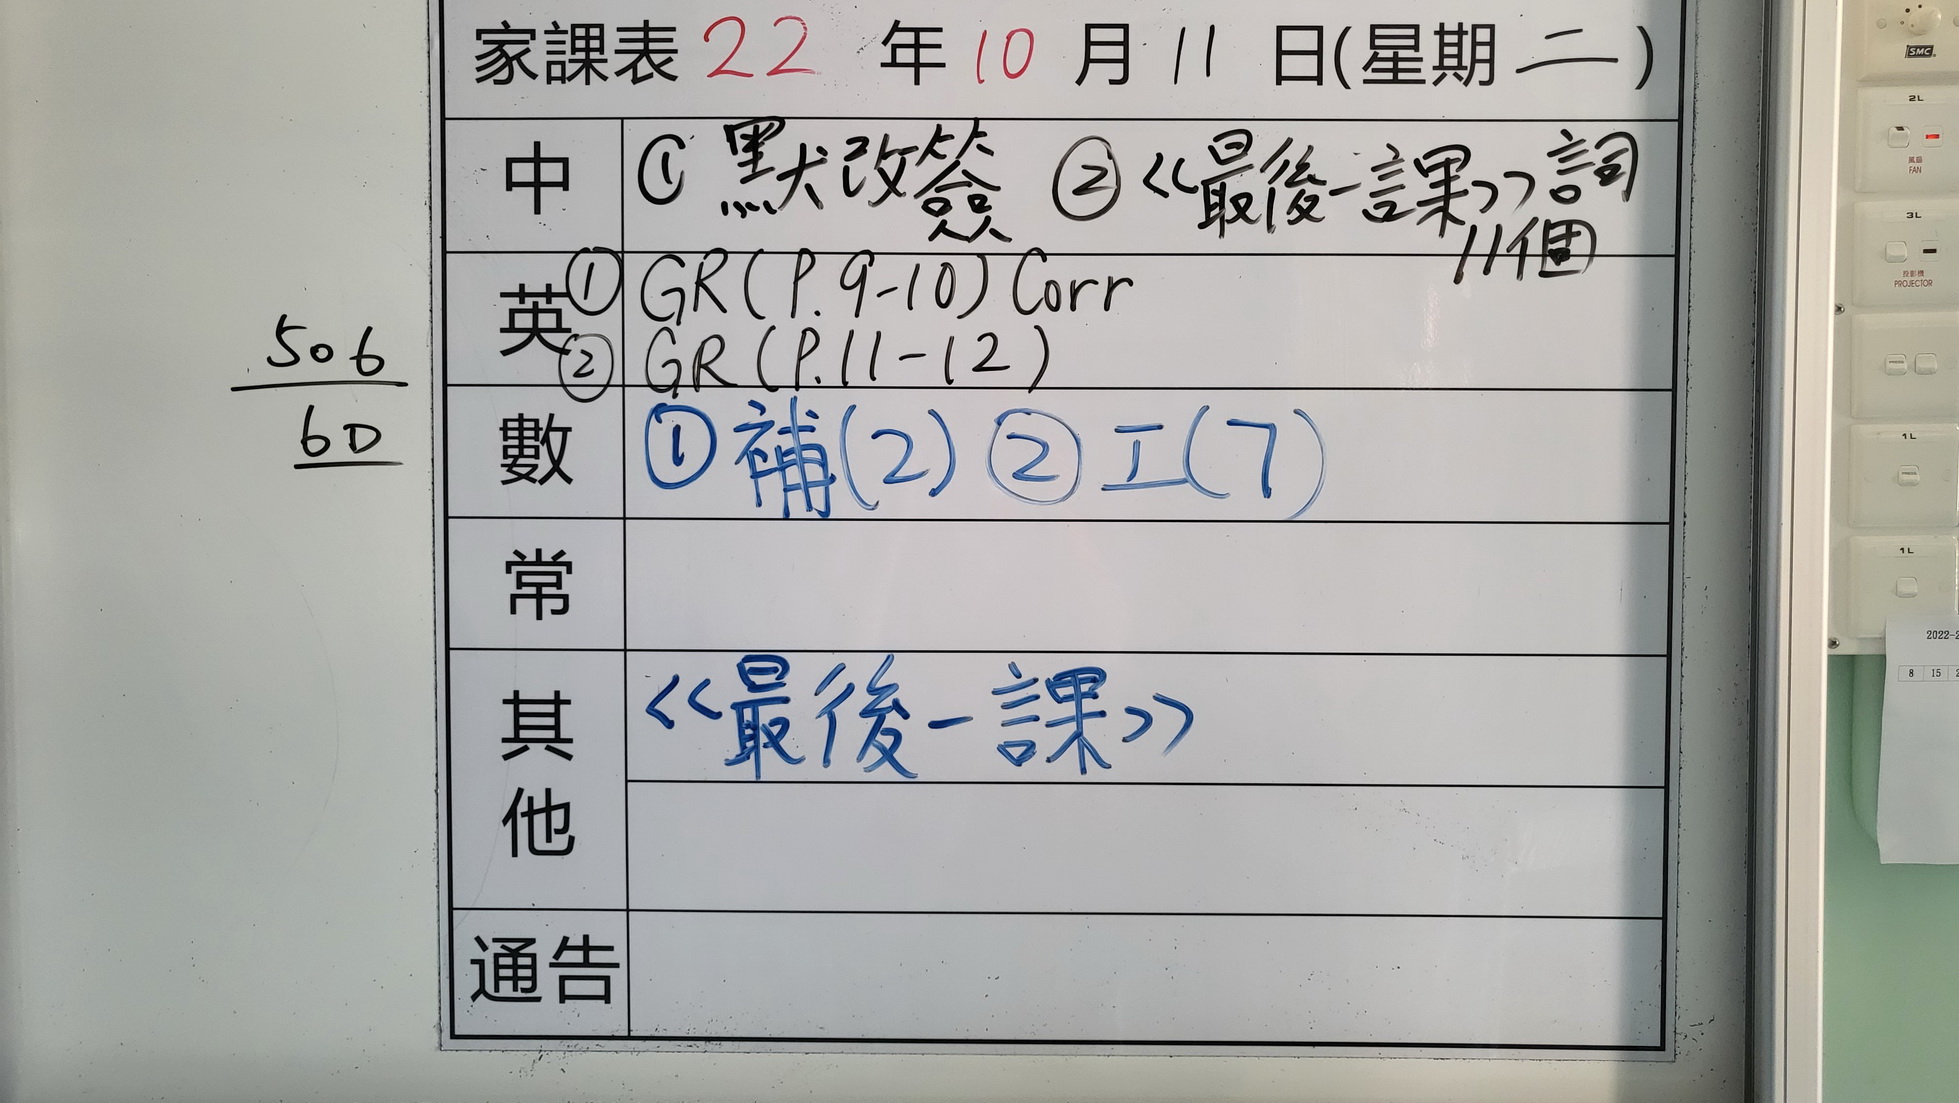 家課表 22 年 10 月 11 日(星期 二)
中 ① 默改簽 ② <<最後一課>> 詞
11個
英 ① GR(P.9-10) Corr
② GR(P.11-12)
506
6D
數 ① 補(2) ② 工(7)
常
其他 <<最後一課>>
通告
SMC
2L
風扇
FAN
3L
投影機
PROJECTOR
1L
1L
2022-2
8 15 2